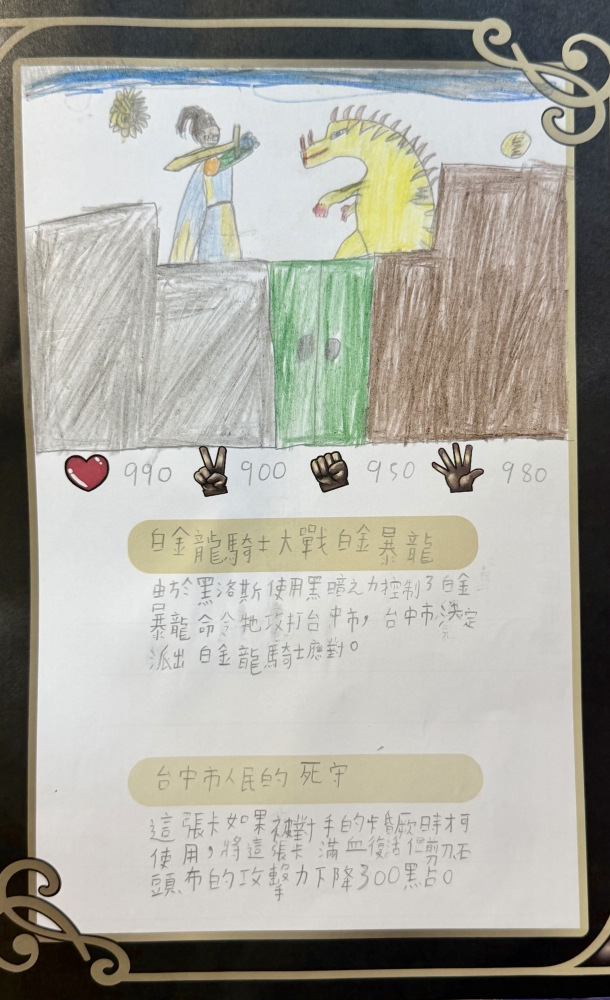 990 900 950 980
白金龍騎士大戰白金暴龍
由於黑洛斯使用黑暗之力控制了白金
暴龍命令牠攻打台中市，台中市決定
派出白金龍騎士應對。
台中市人民的死守
這張卡如果被對手的卡昏厥時才可
使用，將這張卡滿血復活但剪刀石
頭布的攻擊力下降300點。